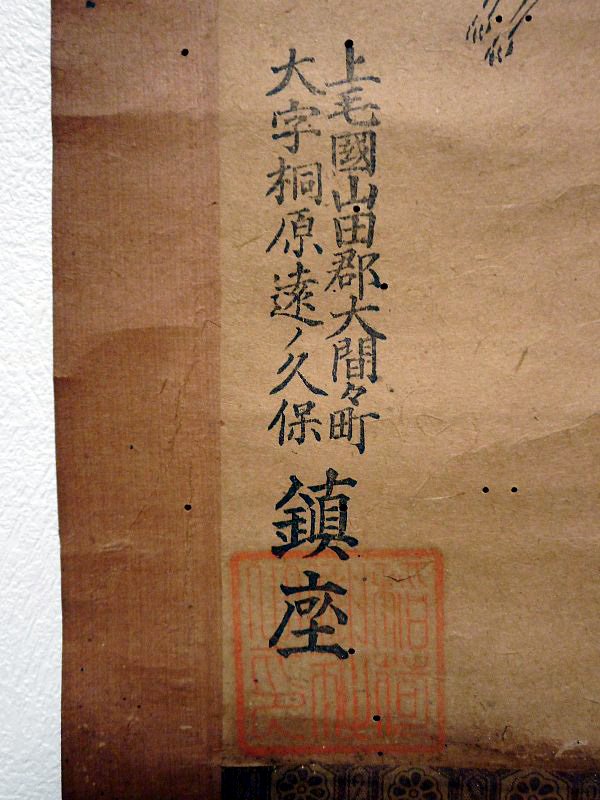 上毛國山田郡大間々町
大字桐原遠ノ久保
鎮座